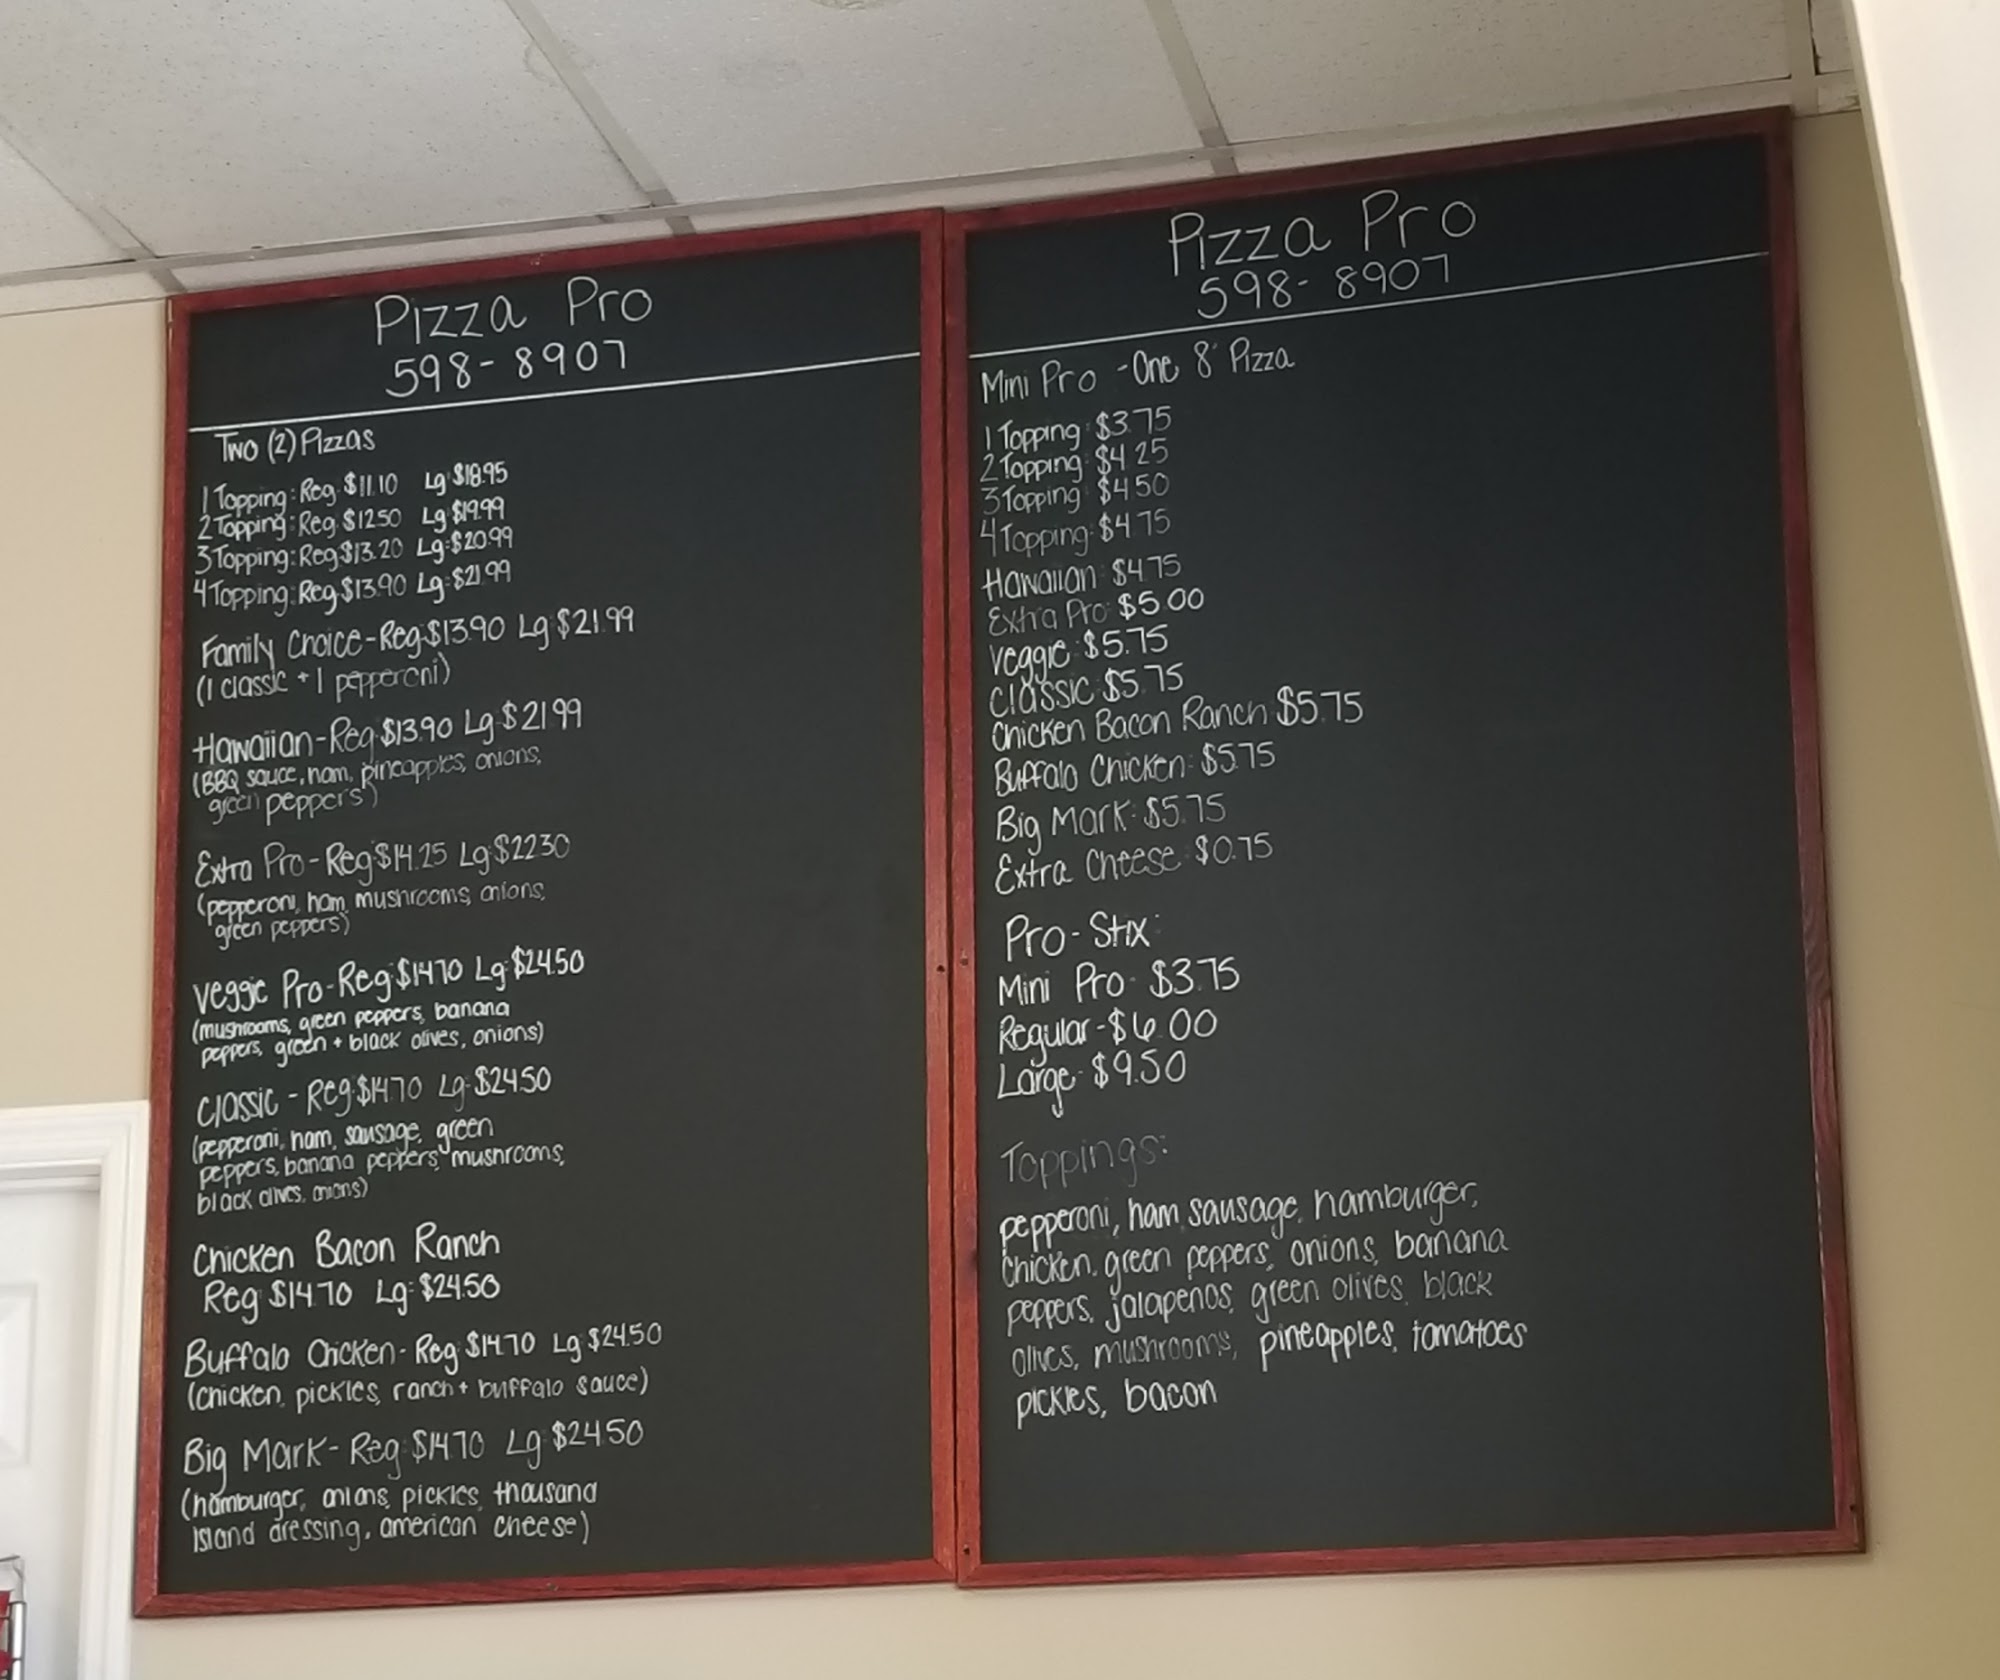 Pizza Pro
598-8907
Two (2) Pizzas
1 Topping: Reg: $11.10 Lg: $18.95
2 Topping: Reg: $12.50 Lg: $19.99
3 Topping: Reg: $13.20 Lg: $20.99
4 Topping: Reg: $13.90 Lg: $21.99
Family Choice - Reg: $13.90 Lg: $21.99
(1 classic + 1 pepperoni)
Hawaiian - Reg: $13.90 Lg: $21.99
(BBQ sauce, ham, pineapples, onions,
green peppers)
Extra Pro - Reg: $14.25 Lg: $22.30
(pepperoni, ham, mushrooms, onions,
green peppers)
Veggie Pro - Reg: $14.70 Lg: $24.50
(mushrooms, green peppers, banana
peppers, green + black olives, onions)
Classic - Reg: $14.70 Lg: $24.50
(pepperoni, ham, sausage, green
peppers, banana peppers, mushrooms,
black olives, onions)
Chicken Bacon Ranch
Reg: $14.70 Lg: $24.50
Buffalo Chicken - Reg: $14.70 Lg: $24.50
(chicken, pickles, ranch + buffalo sauce)
Big Mark - Reg: $14.70 Lg: $24.50
(hamburger, onions, pickles, thousand
island dressing, american cheese)
Pizza Pro
598-8907
Mini Pro - One 8" Pizza
1 Topping: $3.75
2 Topping: $4.25
3 Topping: $4.50
4 Topping: $4.75
Hawaiian: $4.75
Extra Pro: $5.00
Veggie: $5.75
Classic: $5.75
Chicken Bacon Ranch: $5.75
Buffalo Chicken: $5.75
Big Mark: $5.75
Extra Cheese: $0.75
Pro-Stix:
Mini Pro - $3.75
Regular - $6.00
Large - $9.50
Toppings:
pepperoni, ham, sausage, hamburger,
chicken, green peppers, onions, banana
peppers, jalapenos, green olives, black
olives, mushrooms, pineapples, tomatoes
pickles, bacon